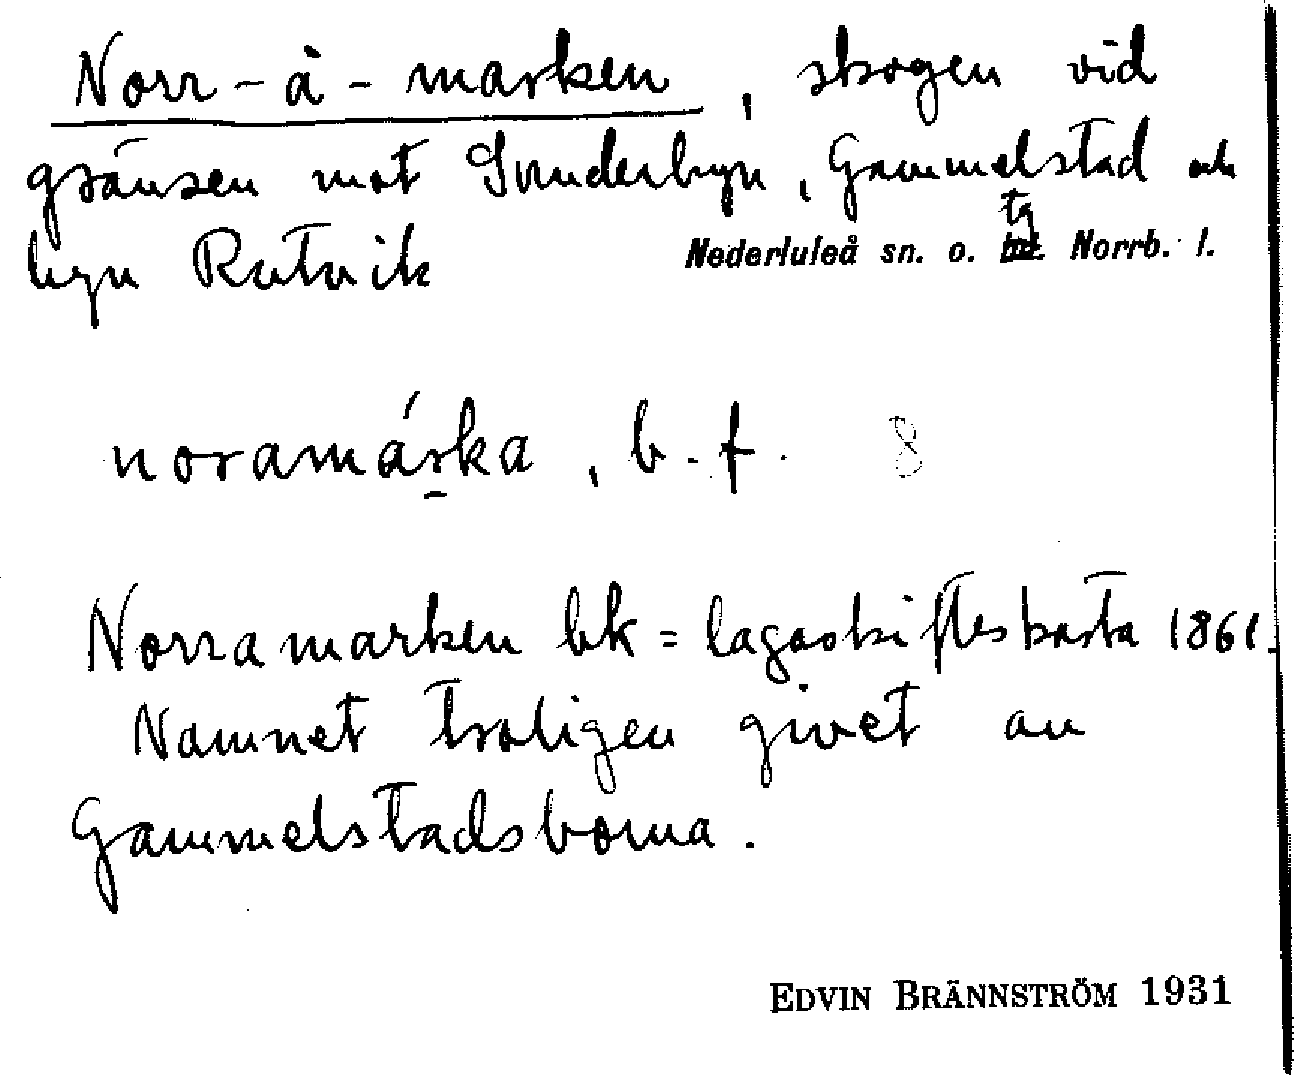 Norr-å-marken, skogen vid
gränsen mot Sunderbyn, Gammelstad och
byn Rutvik
Nederluleå sn. o. tg Norrb. l.
noramárka, b. f. 8
Norramarken bk = lagaskifteskarta 1861.
Namnet troligen givet av
Gammelstadsborna.
EDVIN BRÄNNSTRÖM 1931